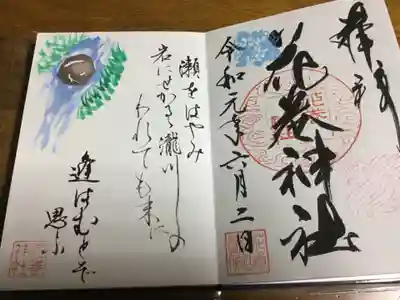 奉拝
花巻神社
令和元年六月二日
瀬をはやみ
岩にせかるゝ瀧川の
われても末に
逢はむとぞ
思ふ